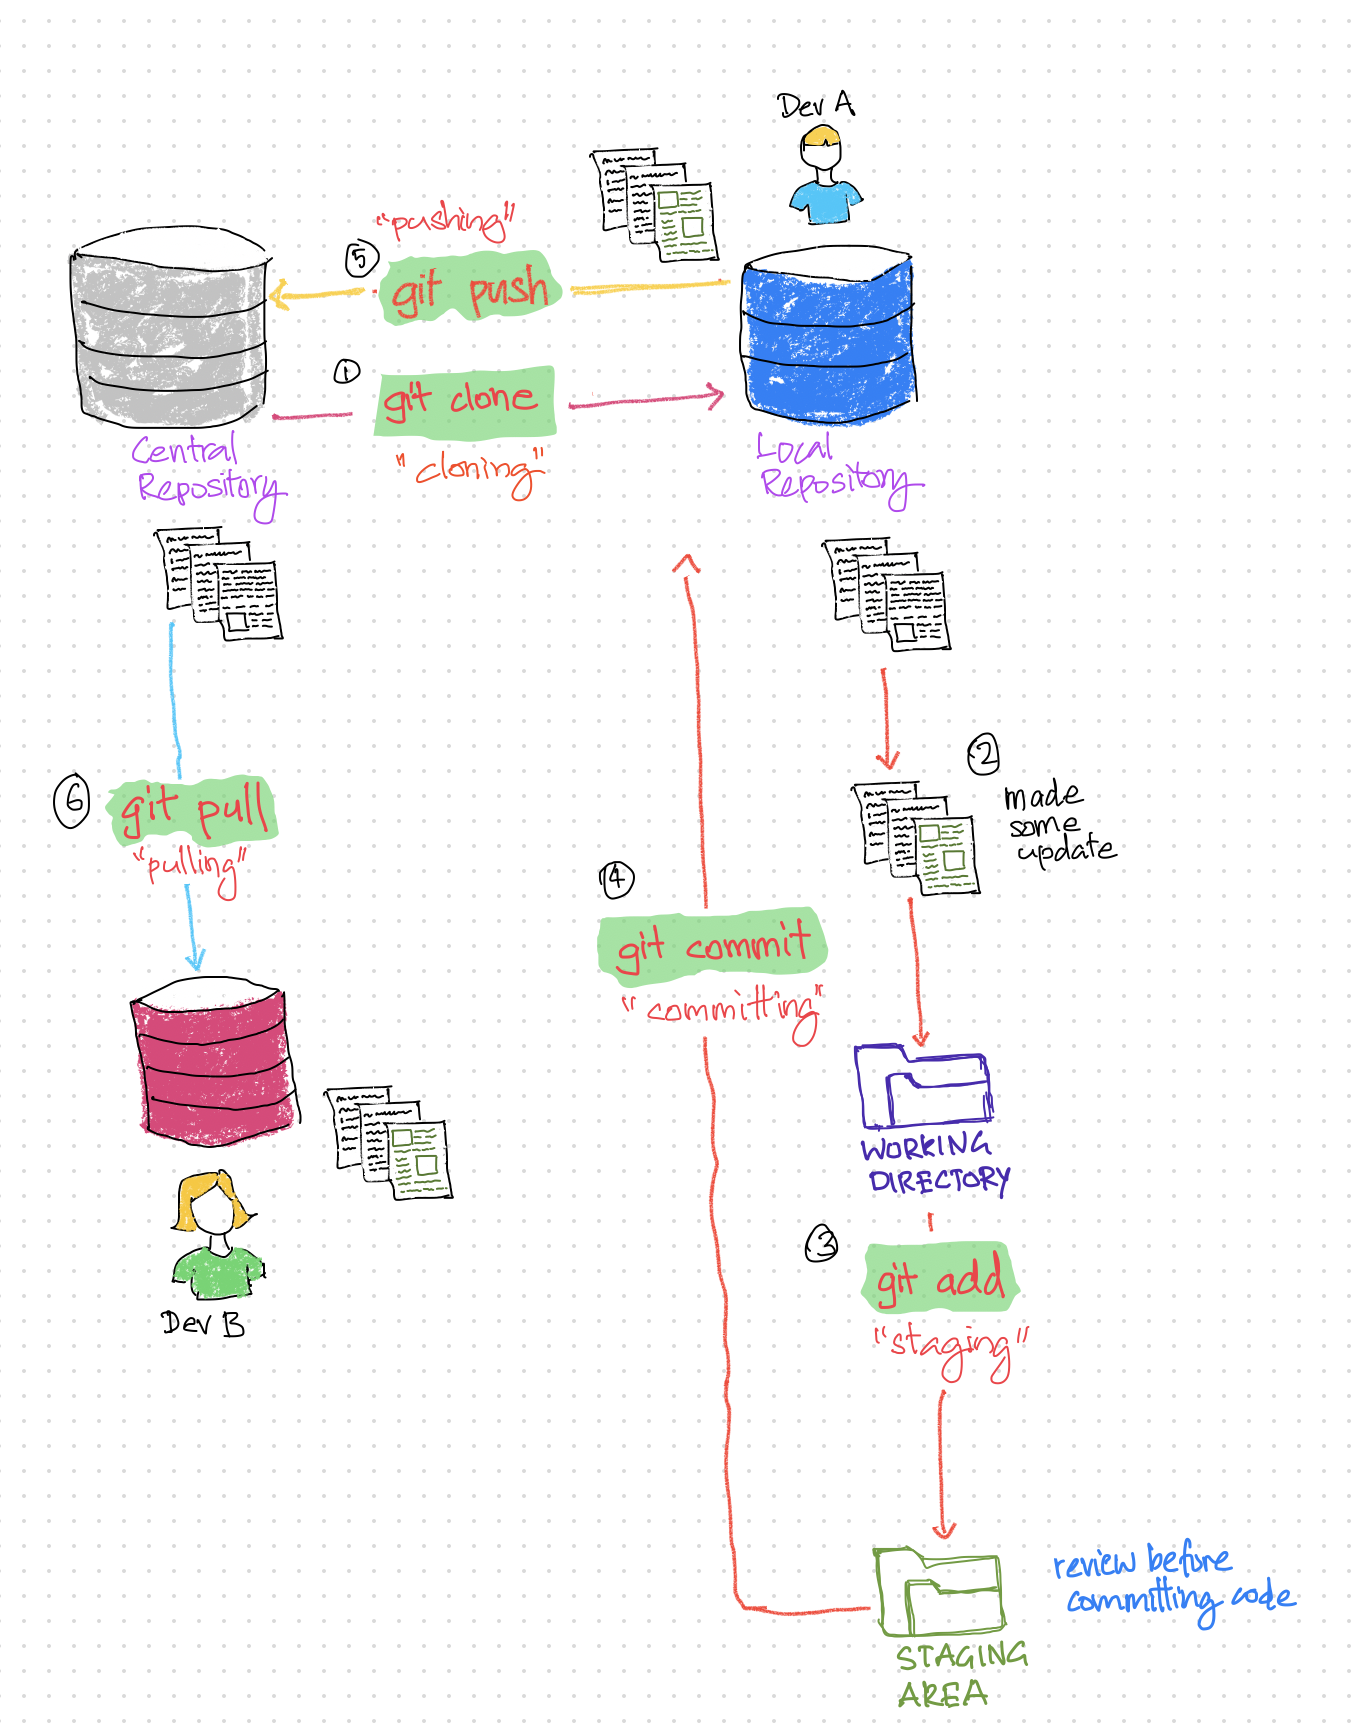 Dev A
"pushing"
5
git push
1
git clone
"cloning"
Central
Repository
Local
Repository
2
made
some
update
6
git pull
"pulling"
4
git commit
"committing"
WORKING
DIRECTORY
3
git add
"staging"
Dev B
review before
committing code
STAGING
AREA